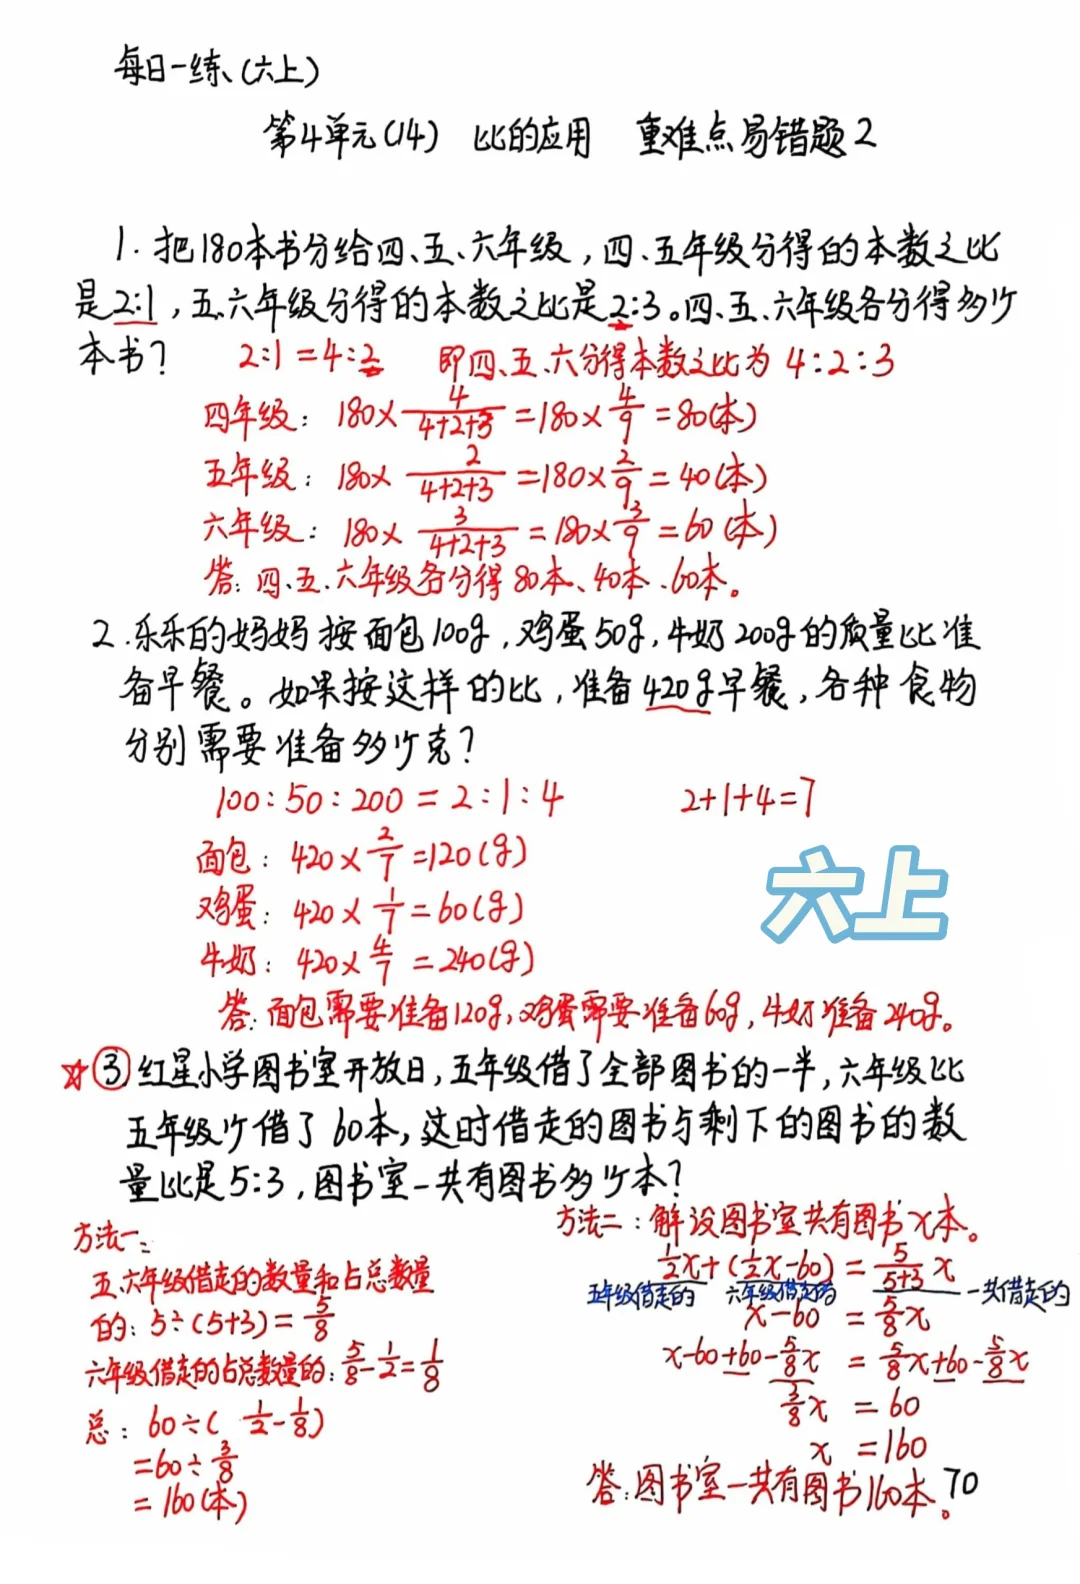 每日一练(六上)
第4单元(14) 比的应用 重难点易错题2
1.把180本书分给四、五、六年级,四、五年级分得的本数之比
是2:1,五、六年级分得的本数之比是2:3。四、五、六年级各分得多少
本书?
2:1=4:2 即四、五、六分得本数之比为 4:2:3
四年级: 180×4/(4+2+3)=180×4/9=80(本)
五年级: 180×2/(4+2+3)=180×2/9=40(本)
六年级: 180×3/(4+2+3)=180×3/9=60(本)
答:四、五、六年级各分得80本、40本、60本。
2.乐乐的妈妈按面包100g,鸡蛋50g,牛奶200g的质量比准
备早餐。如果按这样的比,准备420g早餐,各种食物
分别需要准备多少克?
100:50:200=2:1:4 2+1+4=7
面包: 420×2/7=120(g)
鸡蛋: 420×1/7=60(g)
牛奶: 420×4/7=240(g)
六上
答:面包需要准备120g,鸡蛋需要准备60g,牛奶准备240g。
☆③红星小学图书室开放日,五年级借了全部图书的一半,六年级比
五年级少借了60本,这时借走的图书与剩下的图书的数
量比是5:3,图书室一共有图书多少本?
方法一:
五、六年级借走的数量和占总数量
的:5÷(5+3)=5/8
六年级借走的占总数量的:5/8-1/2=1/8
总: 60÷( 1/2-1/8)
=60÷3/8
=160(本)
方法二:解设图书室共有图书x本。
1/2x+(1/2x-60)=5/(5+3)x
五年级借走的 六年级借走的 一共借走的
x-60=5/8x
x-60+60-5/8x=5/8x+60-5/8x
3/8x=60
x=160
答:图书室一共有图书160本。
70